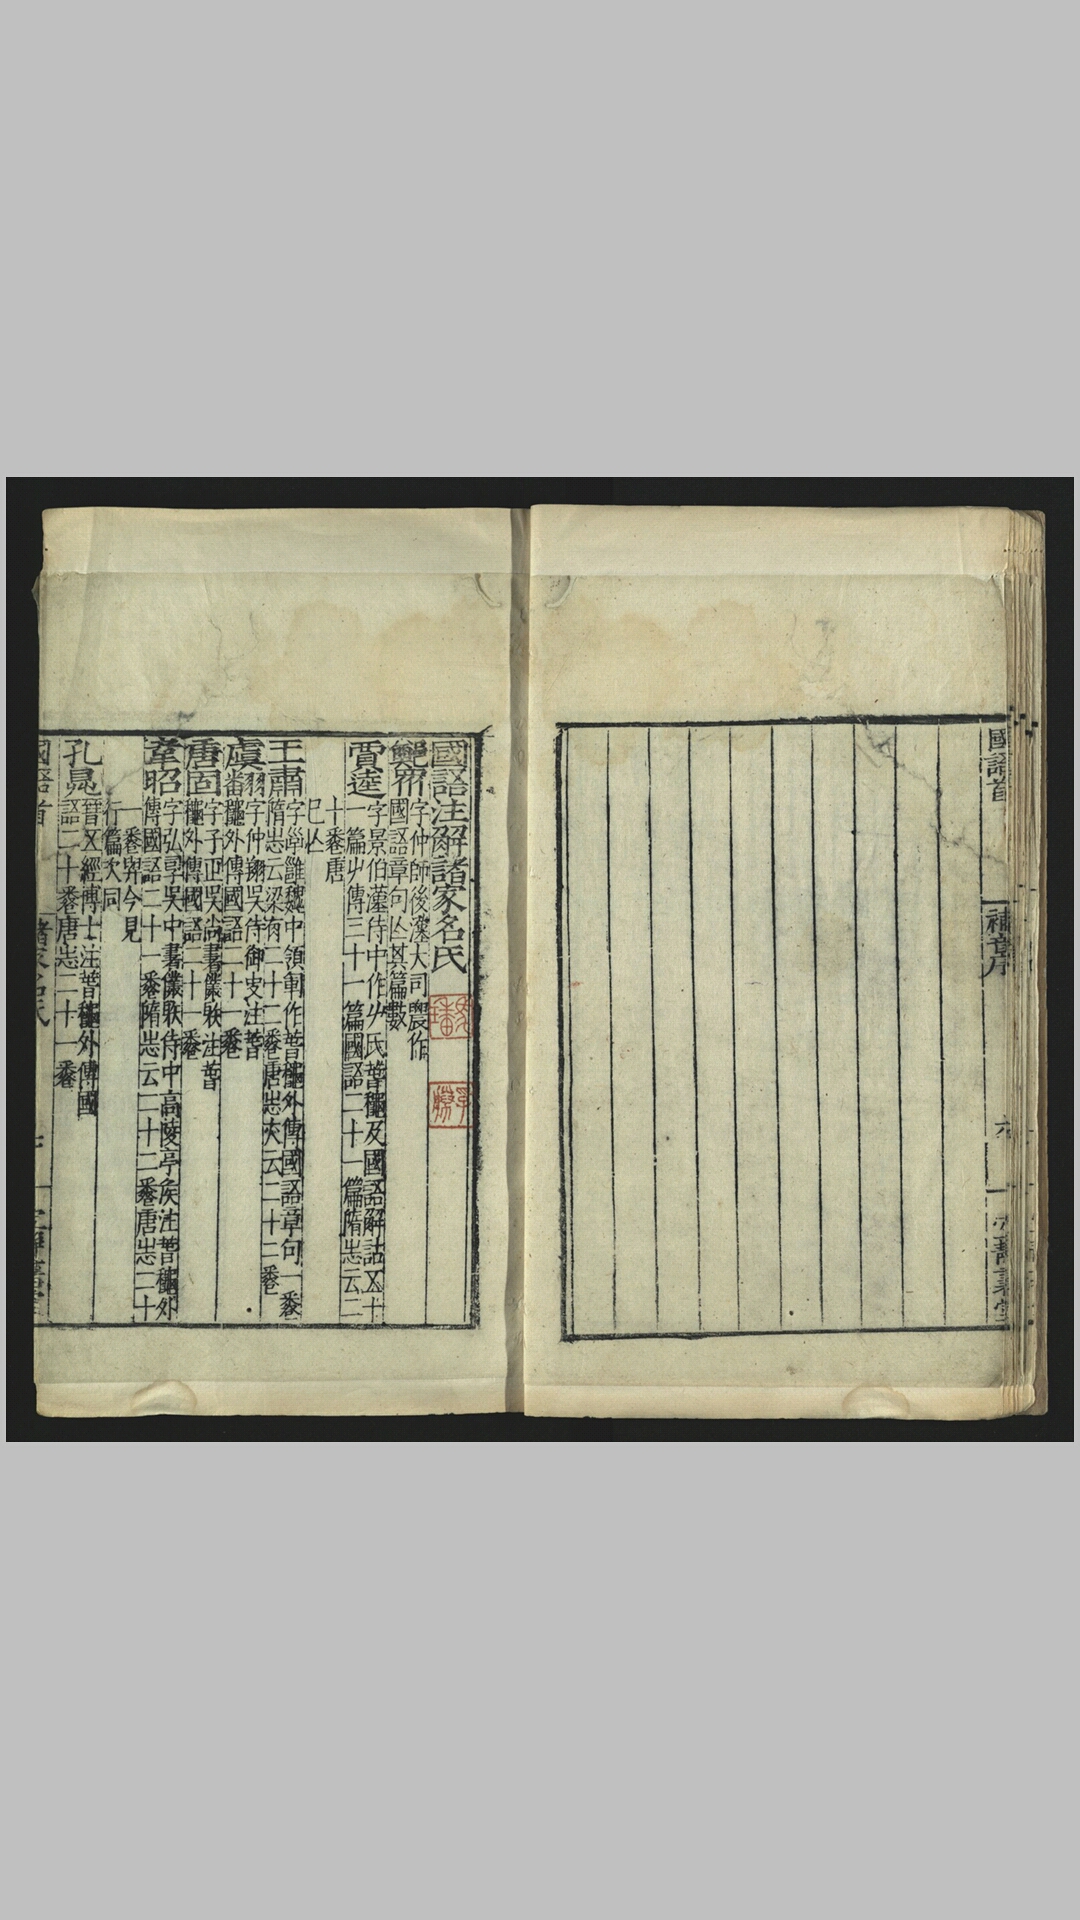 國語首 補音序 六
國語注解諸家名氏
鄭眾
字仲師後漢大司農作
國語章句亾其篇數
賈逵
字景伯漢侍中作左氏春秋及國語解詁五十
一篇左傳三十一篇國語二十一篇隋志云二
十卷唐
已亾
王肅
字子雝魏中領軍作春秋外傳國語章句一卷
隋志云梁有二十二卷唐志亦云二十二卷
虞翻
字仲翔吳侍御史注春
秋外傳國語二十一卷
唐固
字子正吳尚書僕射注春
秋外傳國語二十一卷
韋昭
字弘嗣吳中書僕射侍中高陵亭矦注春秋外
傳國語二十一卷隋志云二十二卷唐志二十
一卷與今見
行篇次同
孔晁
晉五經博士注春秋外傳國
語二十卷唐志二十一卷
國語首 諸家名氏 七